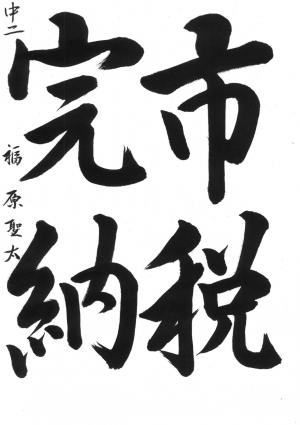 市税
完納
中二 福原聖太